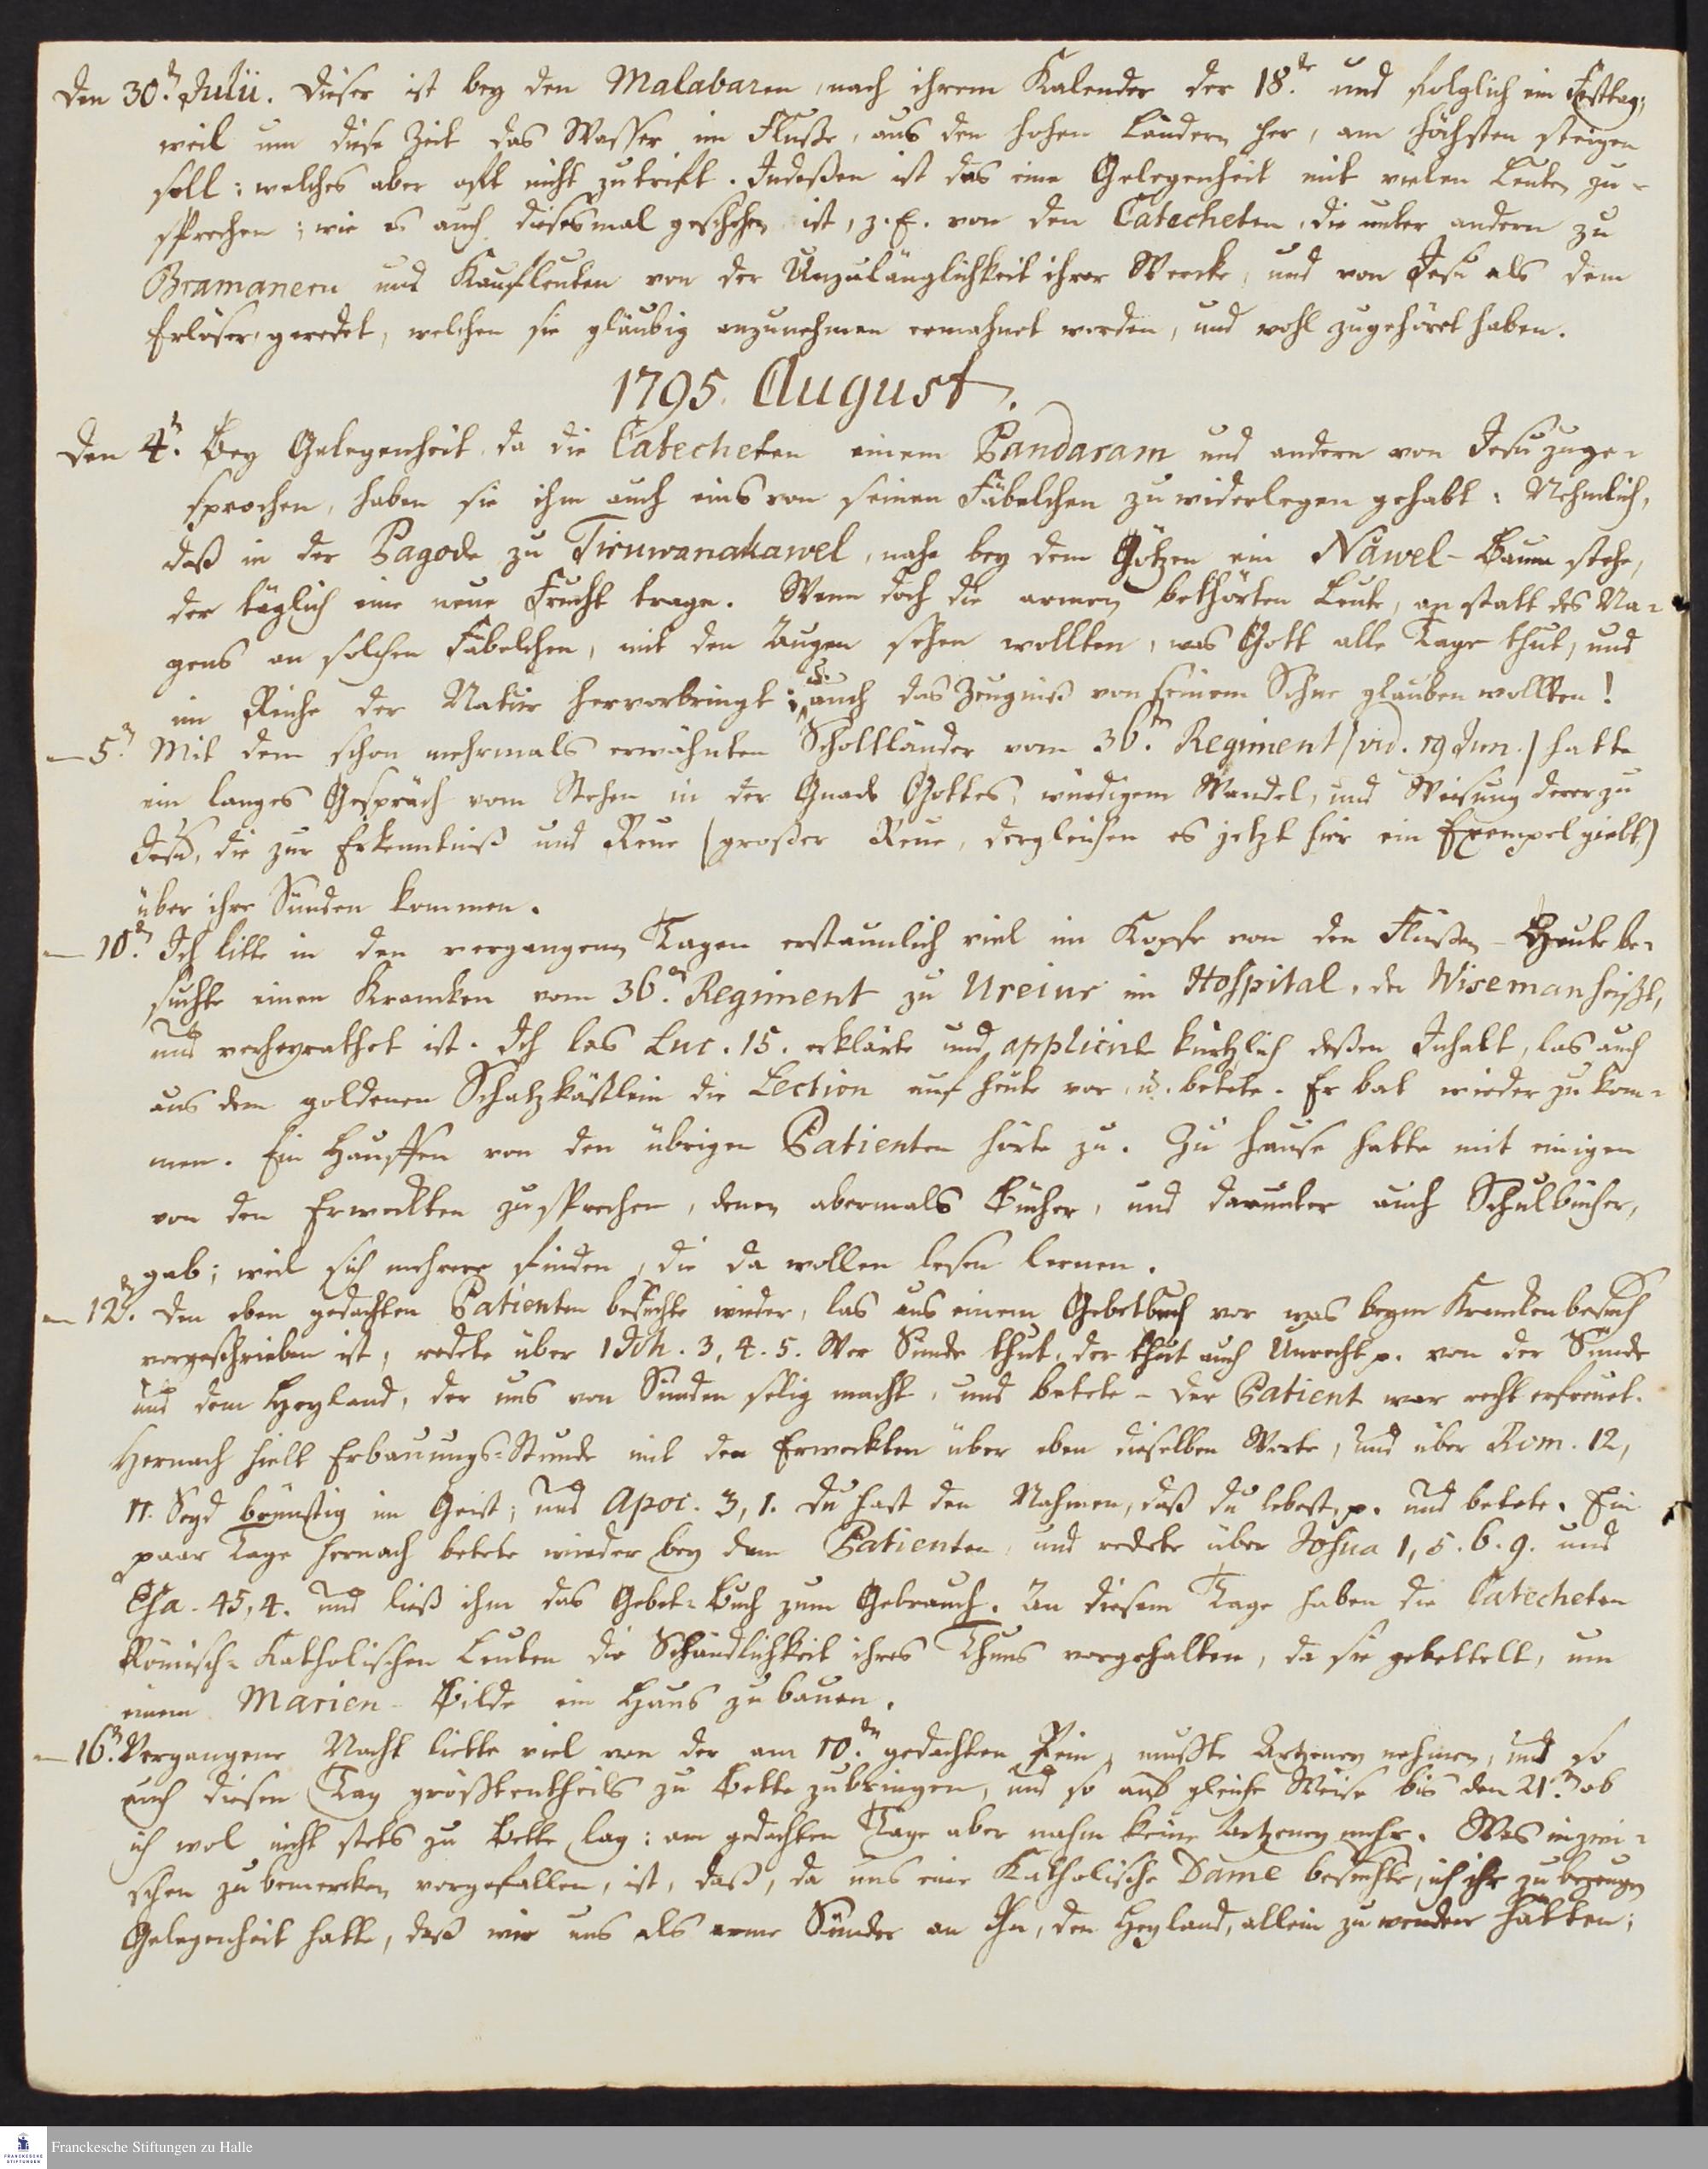 Den 30.n Julii. Dieser ist bey den Malabaren, nach ihrem Kalender der 18.de und folglich ein Festtag;
weil um diese Zeit das Wasser im Fluße, aus den hohen Ländern her, am höchsten steigen
soll: welches aber oft nicht zutrift. Indeßen ist das eine Gelegenheit mit vielen Leuten zu-
sprechen; wie es auch diesesmal geschehen ist, z. E. von den Catecheten, die unter andern zu
Bramanern und Kaufleuten von der Unzulänglichkeit ihrer Wercke, und von Jesu als dem
Erlöser, geredet, welchen sie gläubig anzunehmen ermahnet worden, und wohl zugehöret haben.
1795. August.
Den 4.n Bey Gelegenheit, da die Catecheten einem Pandaram und andern von Jesu zuge-
sprochen, haben sie ihm auch eins von seinen Fäbelchen zu widerlegen gehabt: Nehmlich,
daß in der Pagode zu Tiruwanakawel, nahe bey dem Götzen ein Nâwel-Baum stehe,
der täglich eine neue Frucht trage. Wenn doch die armen bethörten Leute, an statt des Na-
gens an solchen Fabelchen, mit den Augen sehen wollten, was Gott alle Tage thut, und
im Reiche der Natur hervorbringt; u. auch das Zeugniß von seinem Sohne glauben wollten!
— 5.n Mit dem schon mehrmals erwähnten Schottländer vom 36.ten Regiment (vid. 19 Jun.) hatte
ein langes Gespräch vom Stehen in der Gnade Gottes, würdigem Wandel, und Weisung derer zu
Jesu, die zur Erkenntniß und Reue (großer Reue, dergleichen es jetzt hier ein Exempel giebt)
über ihre Sünden kommen.
— 10.n Ich litte in den vergangenen Tagen erstaunlich viel im Kopfe von den Flüßen - Heute be-
suchte einen Krancken vom 36.n Regiment zu Ureiur im Hospital, der Wiseman heißt,
und verheyrathet ist. Ich las Luc. 15. erklärte und applicirte kürtzlich deßen Inhalt, las auch
aus dem goldenen Schatzkästlein die Lection auf heute vor, u. betete. Er bat wieder zu kom-
men. Ein Hauffen von den übrigen Patienten hörte zu. Zu Hause hatte mit einigen
von den Erweckten zu sprechen, denen abermals Bücher, und darunter auch Schulbücher,
gab; weil sich mehrere finden, die da wollen lesen lernen.
— 12.n Den eben gedachten Patienten besuchte wieder, las aus einem Gebetbuch vor was beym Kranckenbesuch
vorgeschrieben ist, redete über 1 Joh. 3, 4. 5. Wer Sünde thut, der thut auch Unrecht p. von der Sünde
und dem Heyland, der uns von Sünden selig macht, und betete - Der Patient war recht erfreuet.
Hernach hielt Erbauungs-Stunde mit den Erweckten über eben dieselben Worte, und über Rom. 12,
11. Seyd brünstig im Geist; und Apoc. 3, 1. Du hast den Nahmen, daß du lebest, p. und betete. Ein
paar Tage hernach betete wieder bey dem Patienten, und redete über Josua 1, 5. 6. 9. und
Esa. 45, 4. und ließ ihm das Gebet-Buch zum Gebrauch. An diesem Tage haben die Catecheten
Römisch-Katholischen Leuten die Schändlichkeit ihres Thuns vorgehalten, da sie gebettelt, um
einem Marien-Bilde ein Haus zu bauen.
— 16.n Vergangene Nacht litte viel von der am 10.den gedachten Pein, mußte Artzeney nehmen, und so
auch diesen Tag größtentheils zu Bette zubringen, und so auf gleiche Weise bis den 21.n ob
ich wol nicht stets zu Bette lag: am gedachten Tage aber nahm keine Artzeney mehr. Was inzwi-
schen zu bemercken vorgefallen, ist, daß, da uns eine Katholische Dame besuchte, ich ihr zu bezeugen
Gelegenheit hatte, daß wir uns als arme Sünder an Ihn, den Heyland, allein zu wenden hätten;
Franckesche Stiftungen zu Halle
FRANCKESCHE
STIFTUNGEN